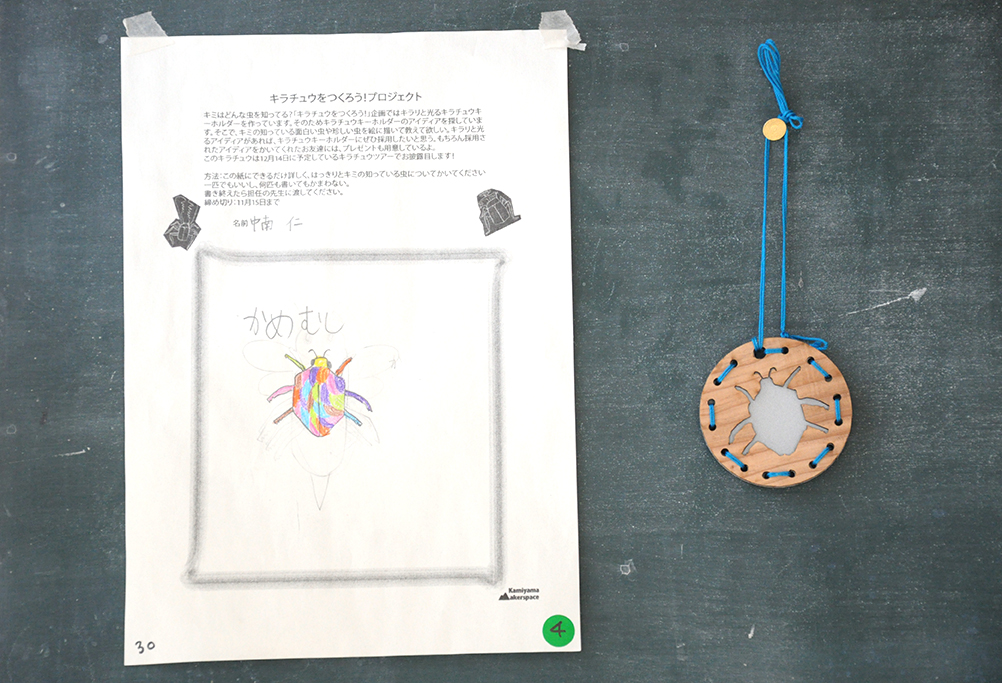 キラチュウをつくろう!プロジェクト
キミはどんな虫を知ってる?「キラチュウをつくろう!」企画ではキラリと光るキラチュウキ
ーホルダーを作っています。そのためキラチュウキーホルダーのアイディアを探していま
す。そこで、キミの知っている面白い虫や珍しい虫を絵に描いて教えて欲しい。キラリと光
るアイディアがあれば、キラチュウキーホルダーにぜひ採用したいと思う。もちろん採用さ
れたアイディアをかいてくれたお友達には、プレゼントも用意しているよ。
このキラチュウは12月14日に予定しているキラチュウツアーでお披露目します!
方法:この紙にできるだけ詳しく、はっきりとキミの知っている虫についてかいてください
一匹でもいいし、何匹も書いてもかまわない。
書き終えたら担任の先生に渡してください。
締め切り:11月15日まで
名前 中南 仁
かめむし
Kamiyama
akerspace
4
30